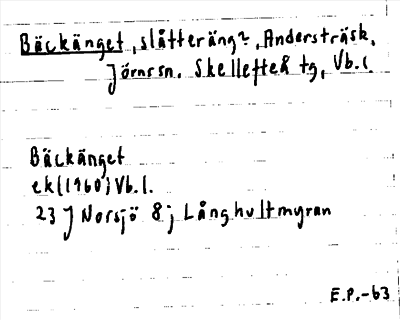 Bäckänget, slåtteräng?, Andersträsk,
Jörns sn. Skellefteå tg, Vb. l.
Bäckänget
ek (1960) Vb. l.
23 J Norsjö 8 j Långhultmyran
E.P.-63